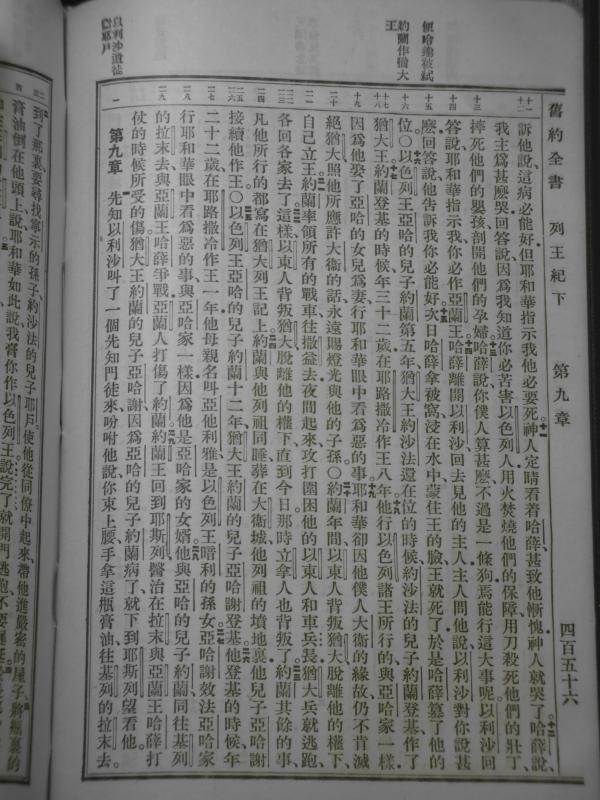 舊約全書 列王紀下 第九章 四百五十六
訴他說這病必能好但耶和華指示我他必要死神人定睛看着哈薛甚致他慚愧神人就哭了哈薛說、
我主爲甚麽哭回答說因爲我知道你必苦害以色列人用火焚燒他們的保障用刀殺死他們的壯丁、
摔死他們的嬰孩剖開他們的孕婦哈薛說你僕人算甚麽不過是一條狗焉能行這大事呢以利沙回
答說耶和華指示我你必作亞蘭王哈薛離開以利沙回去見他的主人主人問他說以利沙對你說甚
麽回答說他告訴我你必能好次日哈薛拿被窩浸在水中蒙住王的臉王就死了於是哈薛篡了他的
位〇以色列王亞哈的兒子約蘭第五年猶大王約沙法還在位的時候約沙法的兒子約蘭登基作了
猶大王約蘭登基的時候年三十二歲在耶路撒冷作王八年他行以色列諸王所行的與亞哈家一樣
因爲他娶了亞哈的女兒爲妻行耶和華眼中看爲惡的事耶和華卻因他僕人大衛的緣故仍不肯滅
絕猶大照他所應許大衛的話永遠賜燈光與他的子孫〇約蘭年間以東人背叛猶大脫離他的權下、
自己立王約蘭率領所有的戰車往撒益去夜間起來攻打圍困他的以東人和車兵長猶大兵就逃跑、
各回各家去了這樣以東人背叛猶大脫離他的權下直到今日那時立拿人也背叛了約蘭其餘的事
凡他所行的都寫在猶大列王記上約蘭與他列祖同睡葬在大衛城他列祖的墳地裏他兒子亞哈謝
接續他作王〇以色列王亞哈的兒子約蘭十二年猶大王約蘭的兒子亞哈謝登基他登基的時候年
二十二歲在耶路撒冷作王一年他母親名叫亞他利雅是以色列王暗利的孫女亞哈謝效法亞哈家
行耶和華眼中看爲惡的事與亞哈家一樣因爲他是亞哈家的女婿他與亞哈的兒子約蘭同往基列
的拉末去與亞蘭王哈薛爭戰亞蘭人打傷了約蘭約蘭王回到耶斯列醫治在拉末與亞蘭王哈薛打
仗的時候所受的傷猶大王約蘭的兒子亞哈謝因爲亞哈的兒子約蘭病了就下到耶斯列望看他。
第九章 先知以利沙叫了一個先知門徒來吩咐他說你束上腰手拿這瓶膏油往基列的拉末去。
以利沙遣徒膏耶戶
到了那裏要尋找寧示的孫子約沙法的兒子耶戶使他從同僚中起來、帶他進嚴密的屋子將瓶裏的
膏油倒在他頭上說耶和華如此說我膏你作以色列王說完了就開門逃跑不要遲延